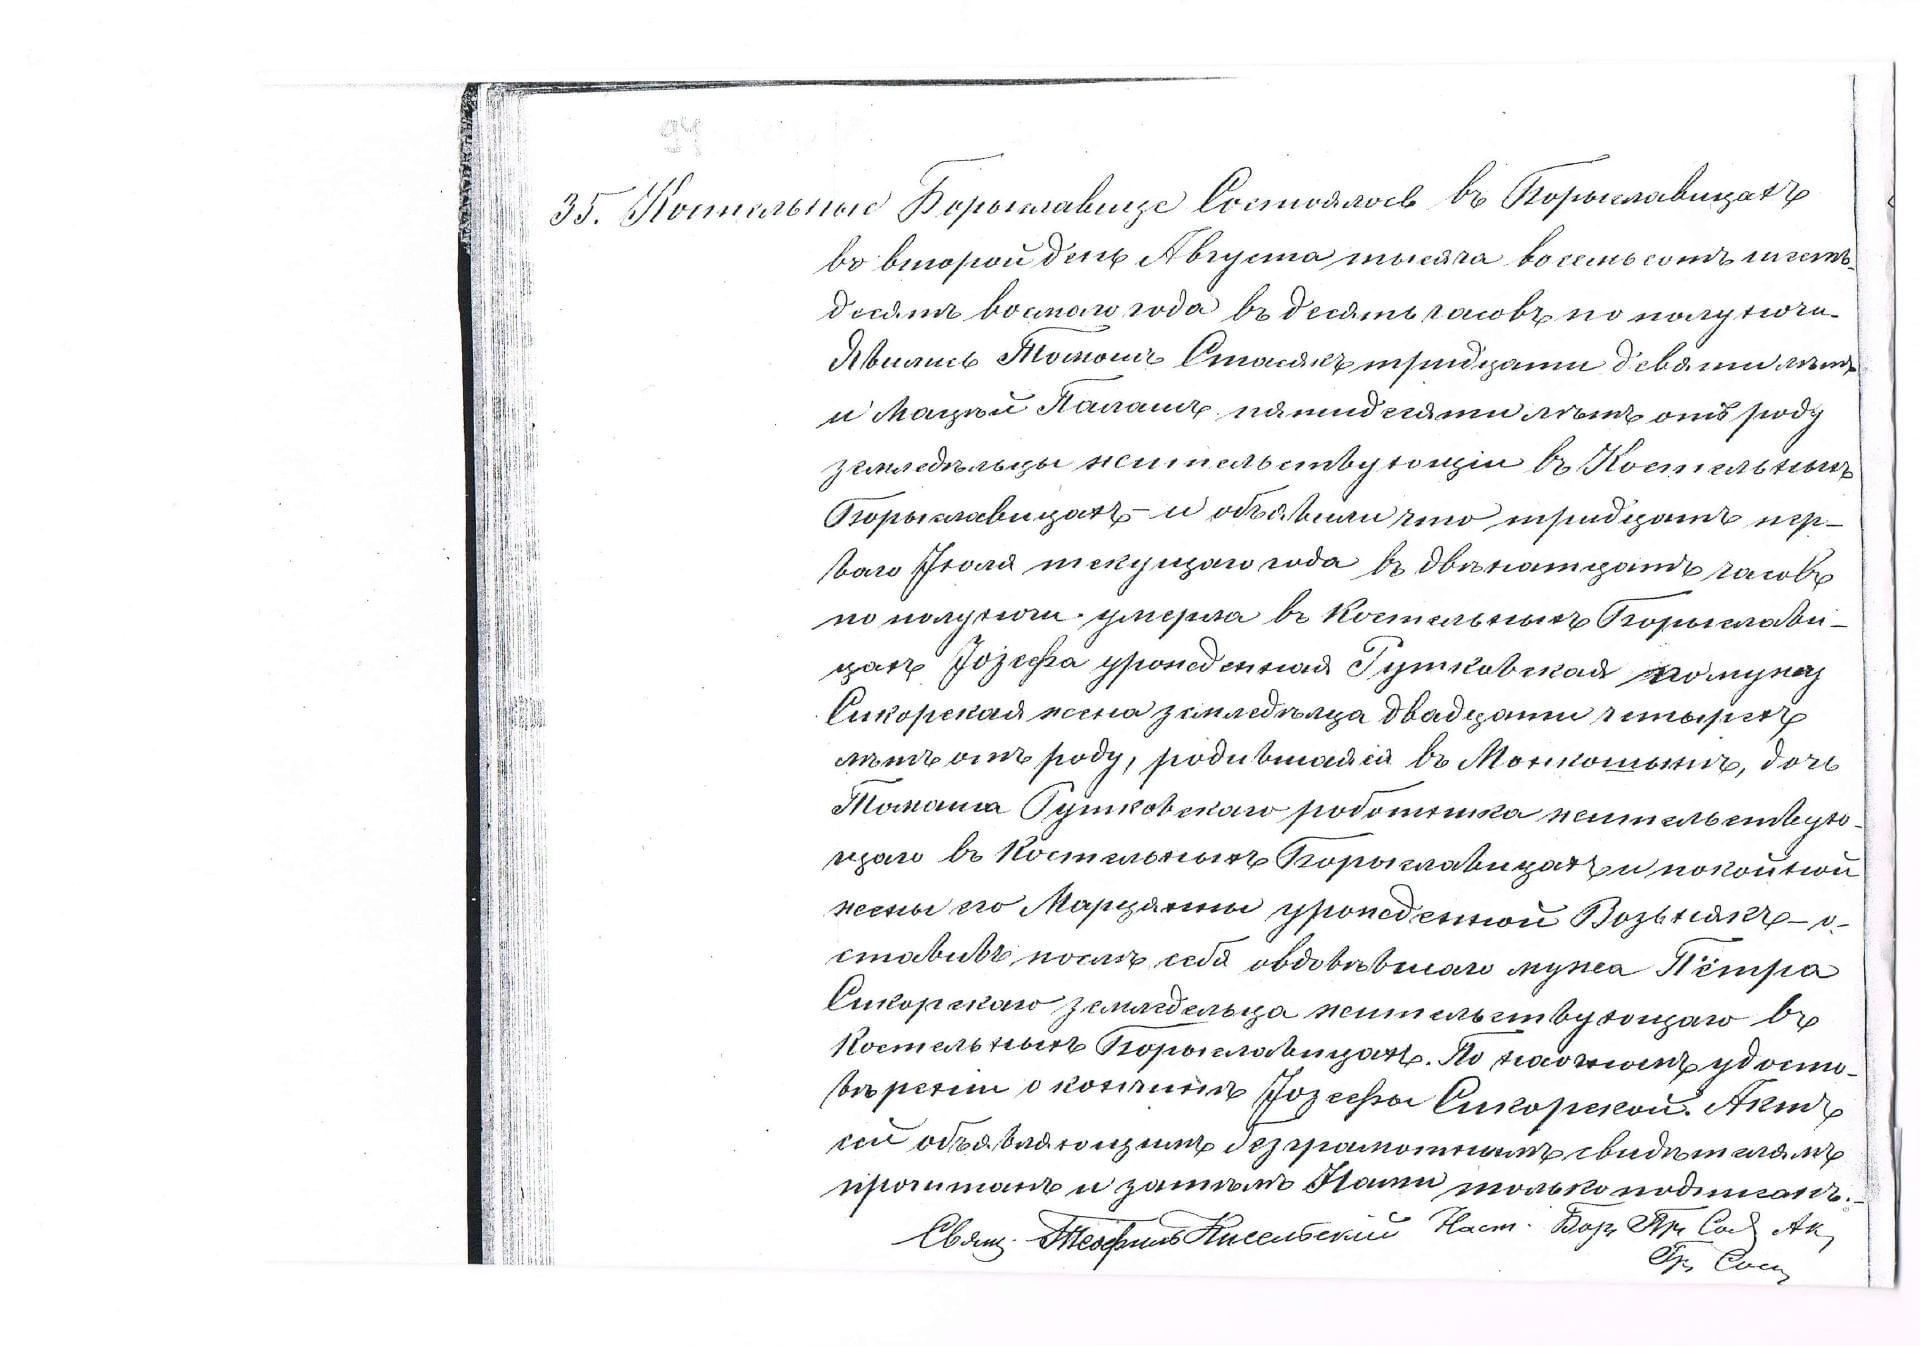 94
35. Костельные Борыславице Состоялось въ Борыславицахъ
во второй день Августа тысяча восемьсотъ шесть-
десятъ восмого года въ десять часовъ по полуночи.
Явились Томашъ Стасякъ тридцати девяти лѣтъ
и Мацѣй Палашъ пятидесяти лѣтъ отъ роду
земледѣльцы жительствующіи въ Костельныхъ
Борыславицахъ – и объявили что тридцать пер-
ваго Іюля текущаго года въ двѣнатцать часовъ
по полуночи умерла въ Костельныхъ Борыслави-
цахъ Іозефа урожденная Гутковская по мужу
Сикорская жена земледѣлца двадцати четырехъ
лѣтъ отъ роду, родившаяся въ Монкошынѣ, дочь
Томаша Гутковскаго роботника жительствую-
щаго въ Костельныхъ Борыславицахъ и покойной
жены его Марцянны урожденной Возьнякъ – о-
ставивъ послѣ себя овдовѣвшаго мужа Пётра
Сикорскаго земледельца жительствующаго въ
Костельныхъ Борыславицахъ. По наочномъ удосто-
вѣреніи о кончинѣ Іозефы Сикорской. Актъ
сей объявляющимъ безграмотнымъ свидѣтелямъ
прочитанъ и затѣмъ Нами только подписанъ. –
Свящ. Теофилъ Кисельскій Наст. Бор. Пр Сод Ак,
Гр, Сост